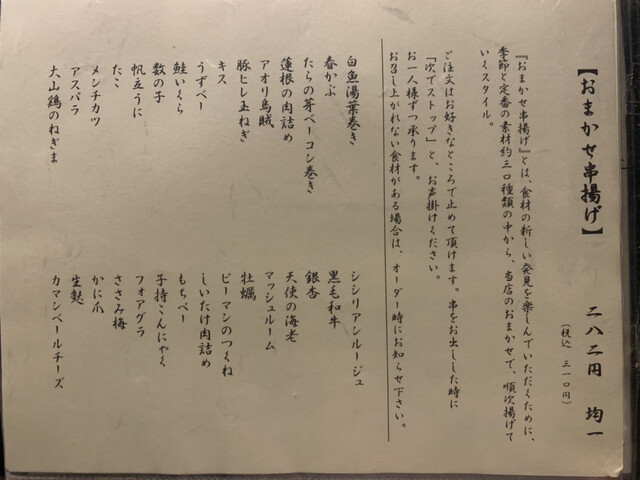 【おまかせ串揚げ】 二八二円 均一
(税込 三一〇円)
『おまかせ串揚げ』とは、食材の新しい発見を楽しんでいただくために、
季節と定番の素材約三〇種類の中から、当店のおまかせで、順次揚げて
いくスタイル。
ご注文はお好きなところで止めて頂けます。串をお出しした時に
「次でストップ」と、お声掛けください。
お一人様ずつ承ります。
お召し上がれない食材がある場合は、オーダー時にお知らせ下さい。
白魚湯葉巻き
春かぶ
たらの芽ベーコン巻き
蓮根の肉詰め
アオリ烏賊
豚ヒレ玉ねぎ
キス
うずベー
鮭いくら
数の子
帆立うに
たこ
メンチカツ
アスパラ
大山鶏のねぎま
シシリアンルージュ
黒毛和牛
銀杏
天使の海老
マッシュルーム
牡蠣
ピーマンのつくね
しいたけ肉詰め
もちベー
子持こんにゃく
フォアグラ
ささみ梅
かに爪
生麩
カマンベールチーズ